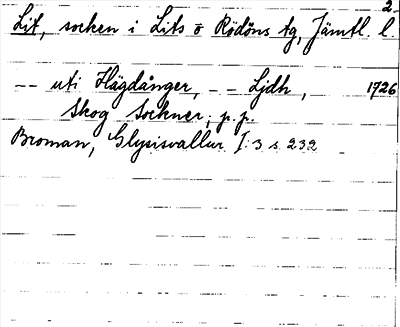 2.
Lit, socken i Lits o Rödöns tg, Jämtl. l.
-- uti Hägdånger, -- Ljdh, 1726
Skog Sockner, p.p.
Broman, Glysisvallur I:3 s. 232